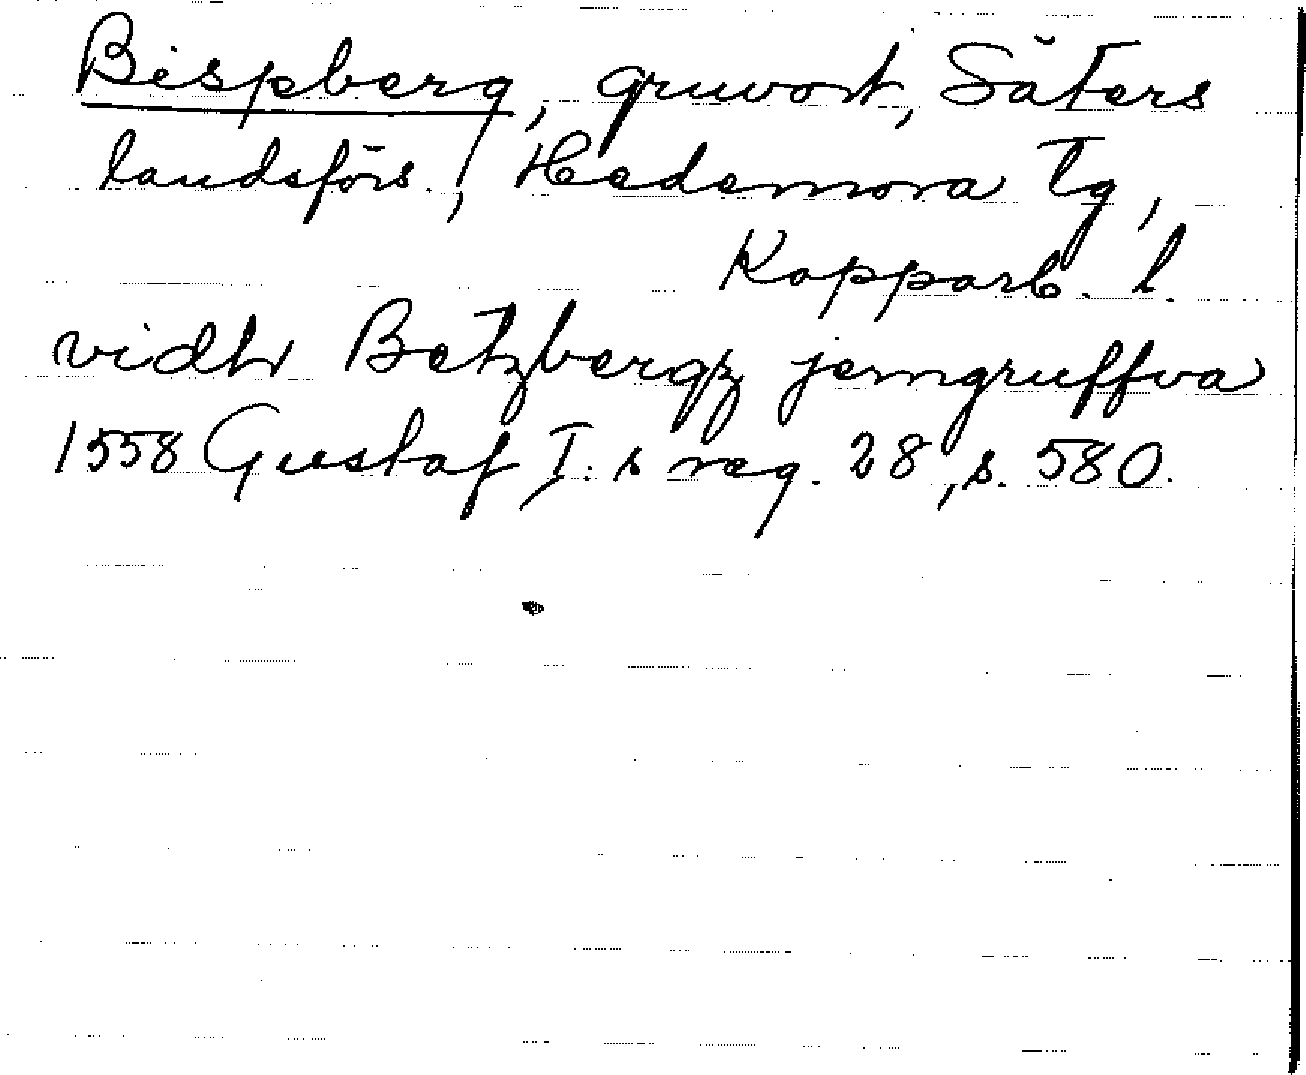 Bispberg, gruvort, Säters
landsförs., Hedemora tg,
Kopparb. l.
vidh Betzbergz jerngruffva
1558 Gustaf I:s reg. 28, s. 580.